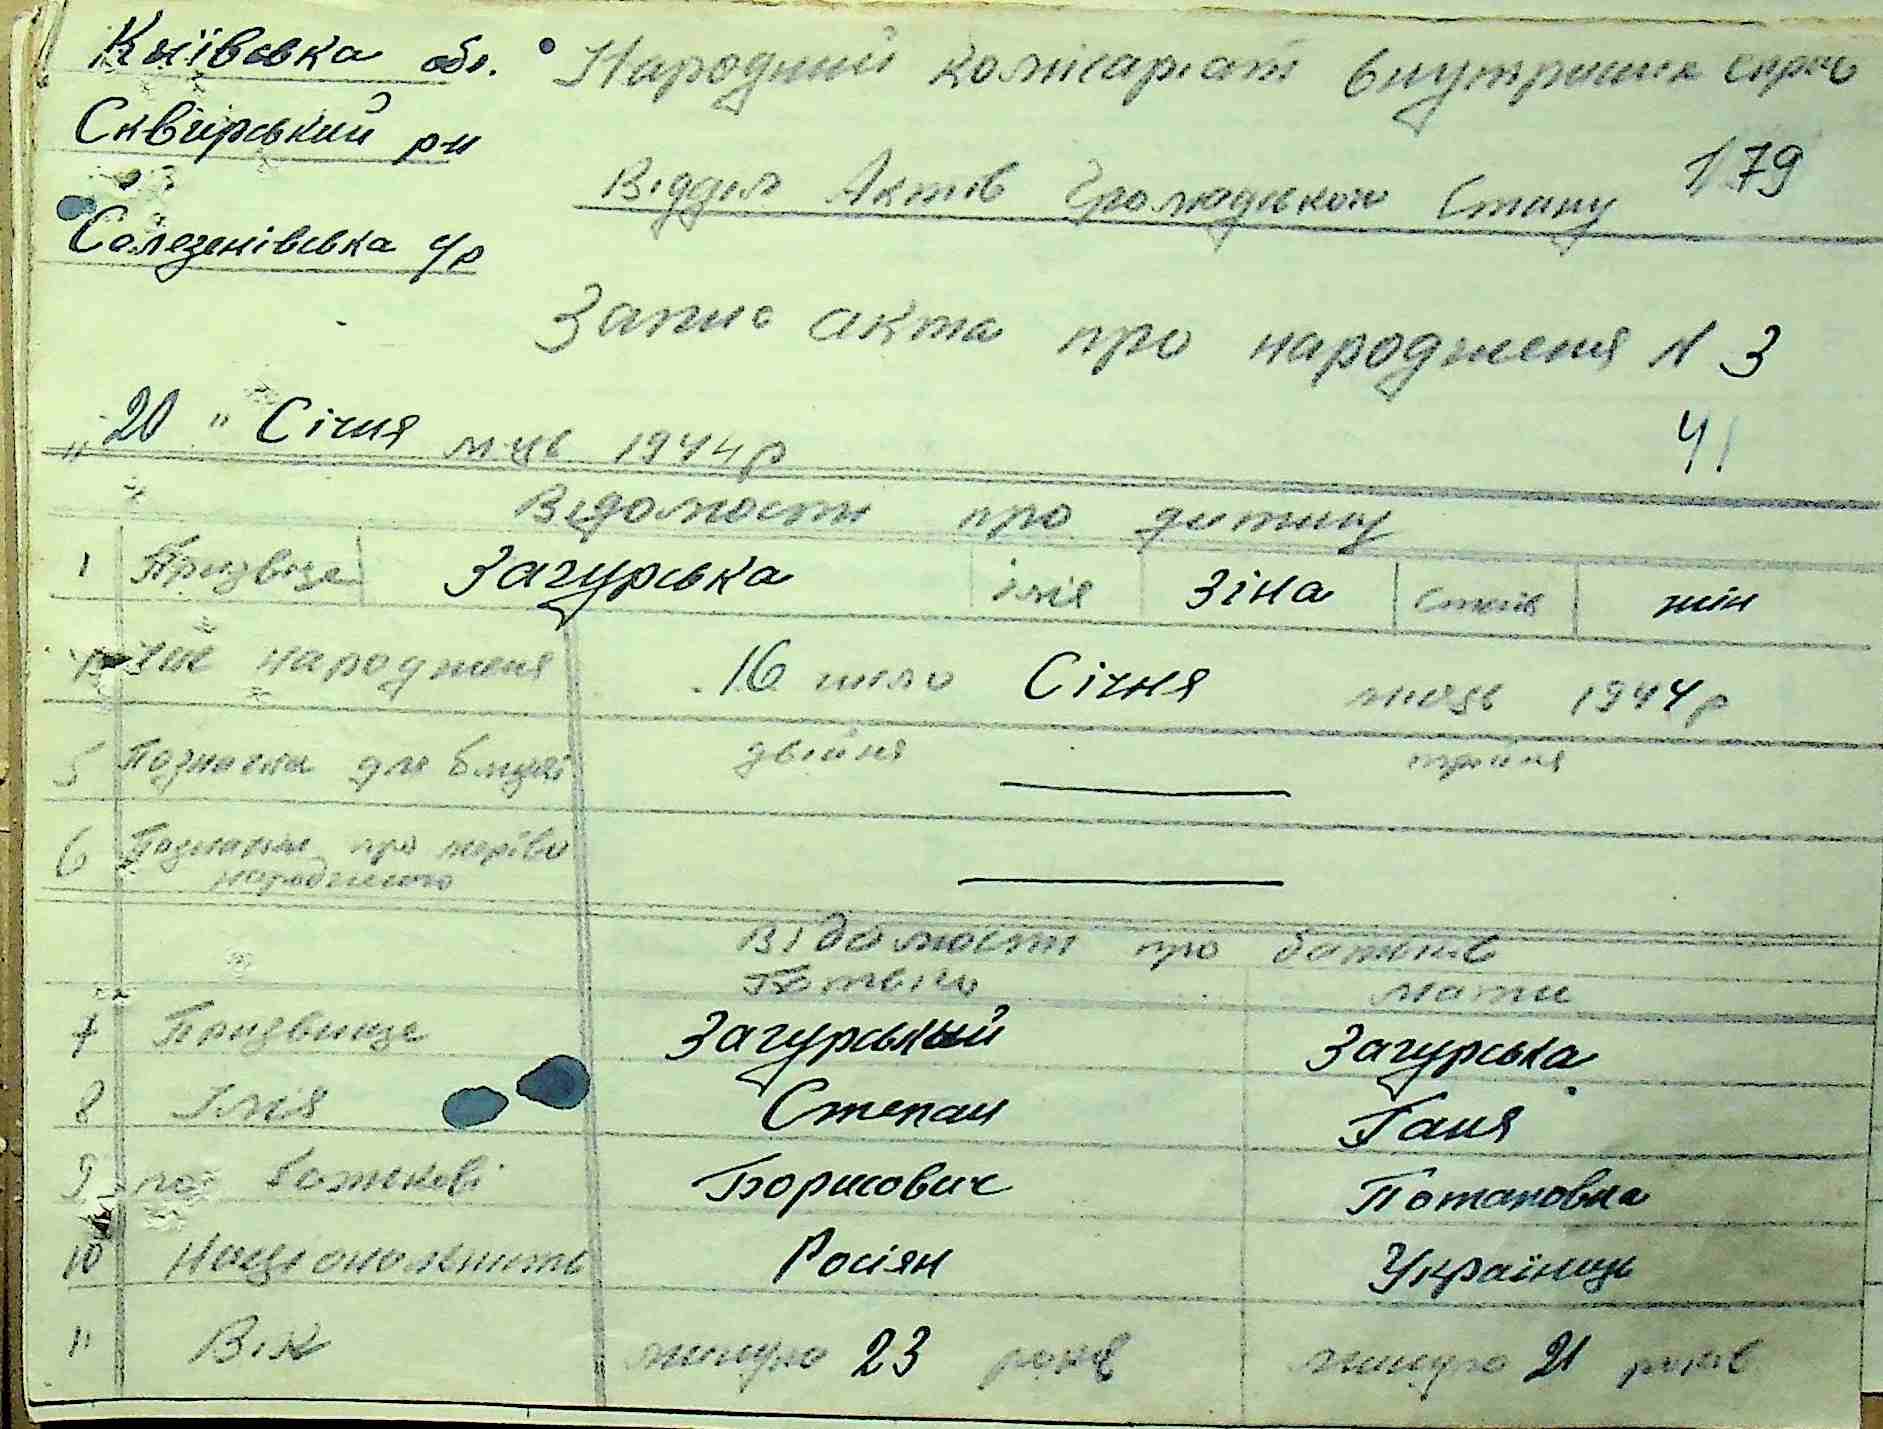 Київська обл.
Народний комісаріат внутришніх справ
Сквирський р-н
Відділ Актів Громадського Стану 179
Селезенівська с/р
Запис акта про народженя N 3
"20" Січня м-ць 1944 р
41
Відомости про дитину
1 Призвіще Загурська імія Зіна стать жін
Час народженя 16 число Січня місяць 1944 р
5 Позначки для близні двійня — трійня
6 Позначки про мертво народженого —
Відомости про батьків
Батько мати
7 Призвище Загурський Загурська
8 Імія Степан Ганя
9 по батькові Борисович Потаповна
10 Національність Росіян Українць
11 Вік минуло 23 років минуло 21 років